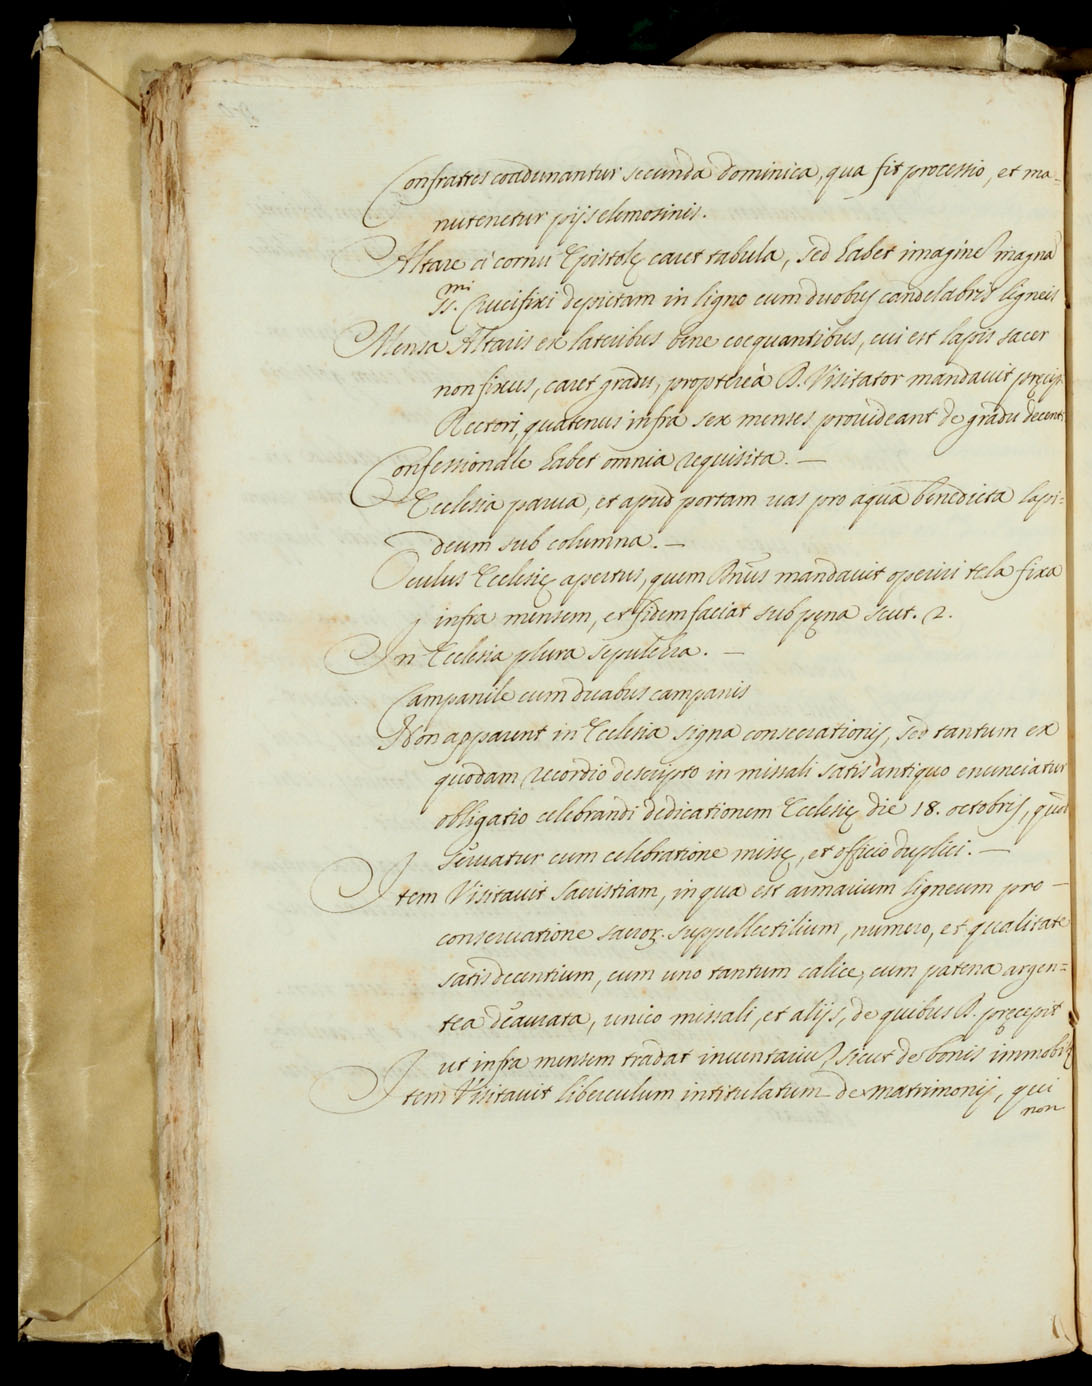 Confratres coadunantur secunda dominica, qua fit processio, et ma=
nutenetur pijs elemosinis.
Altare à cornu Epistolę caret tabula, sed habet imaginē magnā
SS.mi Crucifixi depictam in ligno cum duobus candelabris ligneis
Mensa Altaris ex lateribus bene coequantibus, cui est lapis sacer
non fixus, caret gradu, proptereà R. Visitator mandauit pręcip.
Rectori, quatenus infra sex menses prouideant de gradu decent.
Confessionale habet omnia requisita. —
Ecclesia parua, et apud portam uas pro aqua benedicta lapi=
deum sub columna. —
Oculus Ecclesię apertus, quem Rñus mandauit operiri tela fixa
infra mensem, et fidem faciat sub pęna scut. 2.
In Ecclesia plura sepulchra. —
Campanile cum duabus campanis
Non apparent in Ecclesia signa consecrationis, sed tantum ex
quodam recordio descripto in missali satis antiquo enunciatur
obligatio celebrandi dedicationem Ecclesię die 18. octobris, quod
seruatur cum celebratione missę, et officio duplici. —
Item Visitauit sacristiam, in qua est armarium ligneum pro —
conseruatione sacror. suppellectilium, numero, et qualitate
satis decentium, cum uno tantum calice, cum patena argen=
tea deaurata, unico missali, et alijs, de quibus R. pręcepit
ut infra mensem tradat inuentariū, sicut de bonis immobil.
Item Visitauit liberculum intitulatum de matrimonijs, qui
non